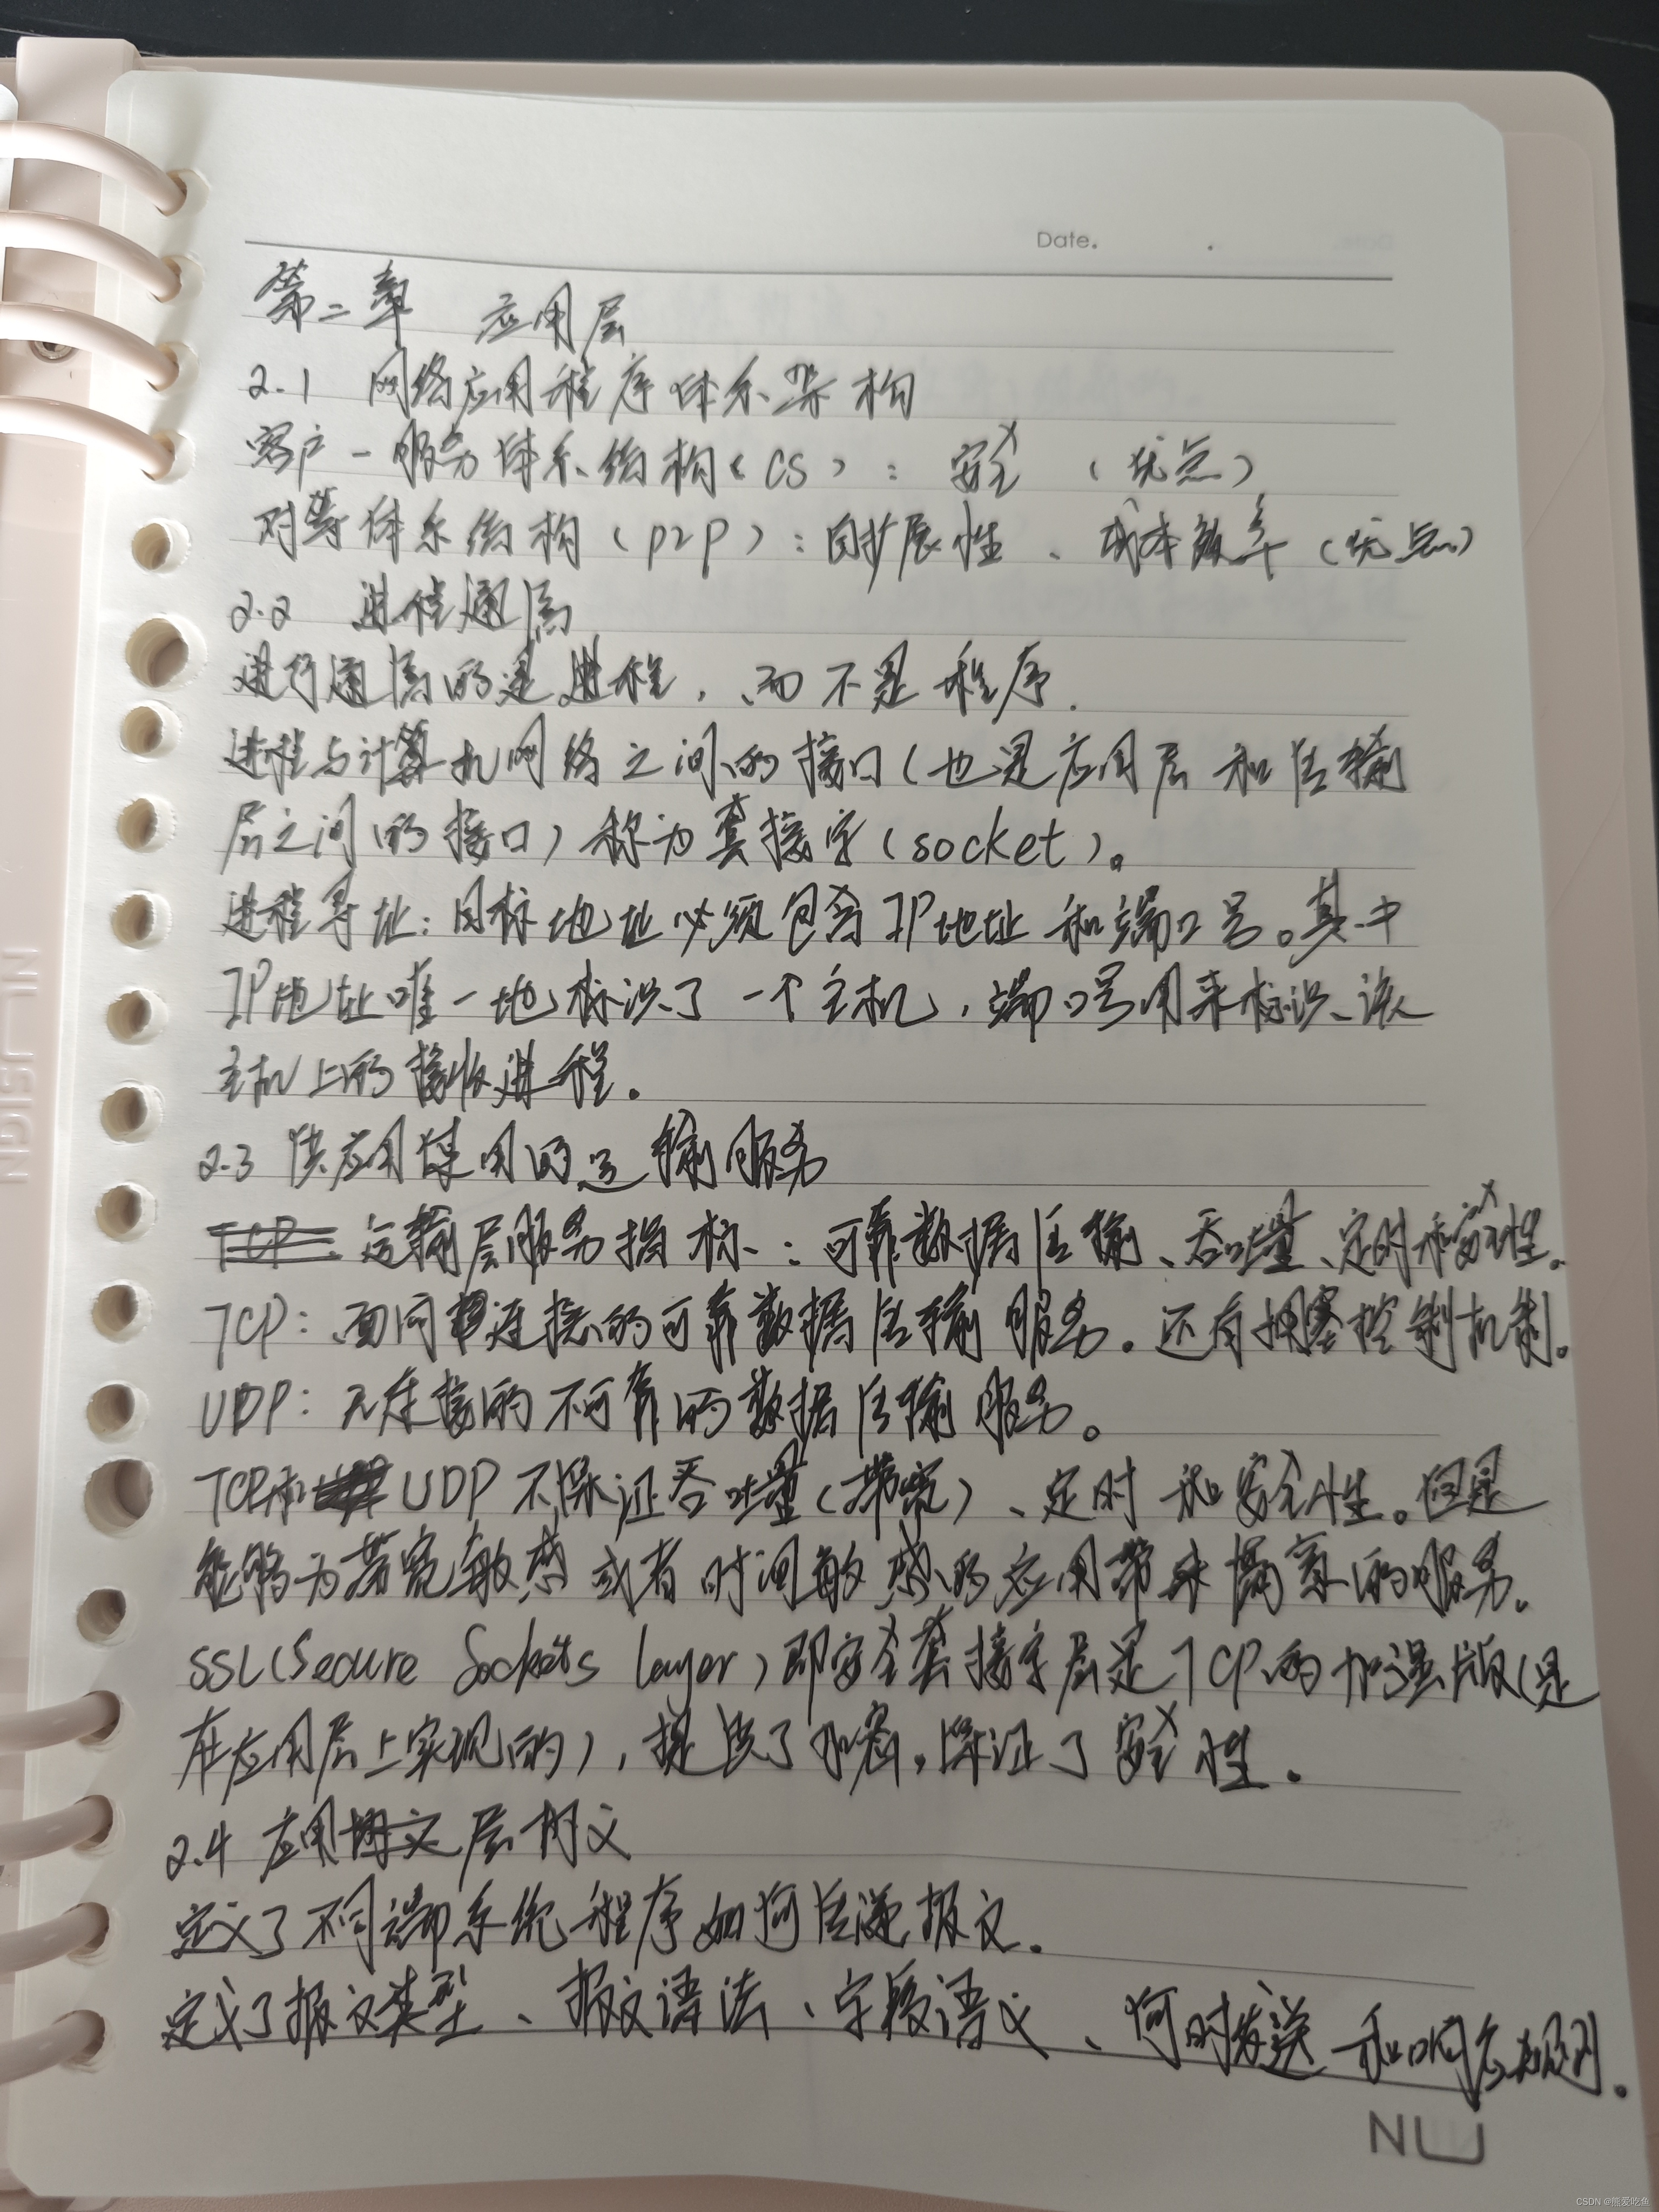 Date.
第二章 应用层
2.1 网络应用程序体系架构
客户-服务体系结构(CS): 安全 (优点)
对等体系结构(P2P): 自扩展性、成本效率(优点)
2.2 进程通信
进行通信的是进程,而不是程序.
进程与计算机网络之间的接口(也是应用层和传输
层之间的接口)称为套接字(socket)。
进程寻址:目标地址必须包含IP地址和端口号。其中
IP地址唯一地标识了一个主机,端口号用来标识该
主机上的接收进程。
2.3 供应用使用的运输服务
TCP 运输层服务指标:可靠数据传输、吞吐量、定时和安全性。
TCP:面向连接的可靠数据传输服务。还有拥塞控制机制。
UDP:无连接的不可靠的数据传输服务。
TCP和UDP不保证吞吐量(带宽)、定时和安全性。但是
能够为带宽敏感或者时间敏感的应用带来满意的服务。
SSL(Secure Sockets Layer)即安全套接字层是TCP的加强版(是
在应用层上实现的),提供了加密,保证了安全性。
2.4 应用层协议
定义了不同端系统程序如何传递报文.
定义了报文类型、报文语法、字段语义、何时发送和响应规则.
CSDN @熊爱吃鱼